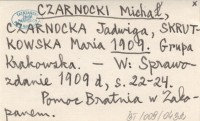 CZARNOCKI Michał,
CZARNOCKA Jadwiga, SKRUT-
KOWSKA Maria 1909. Grupa
Krakowska. — W: Sprawo-
zdanie 1909 r, s. 22-24.
Pomoc Bratnia w Zako-
panem.